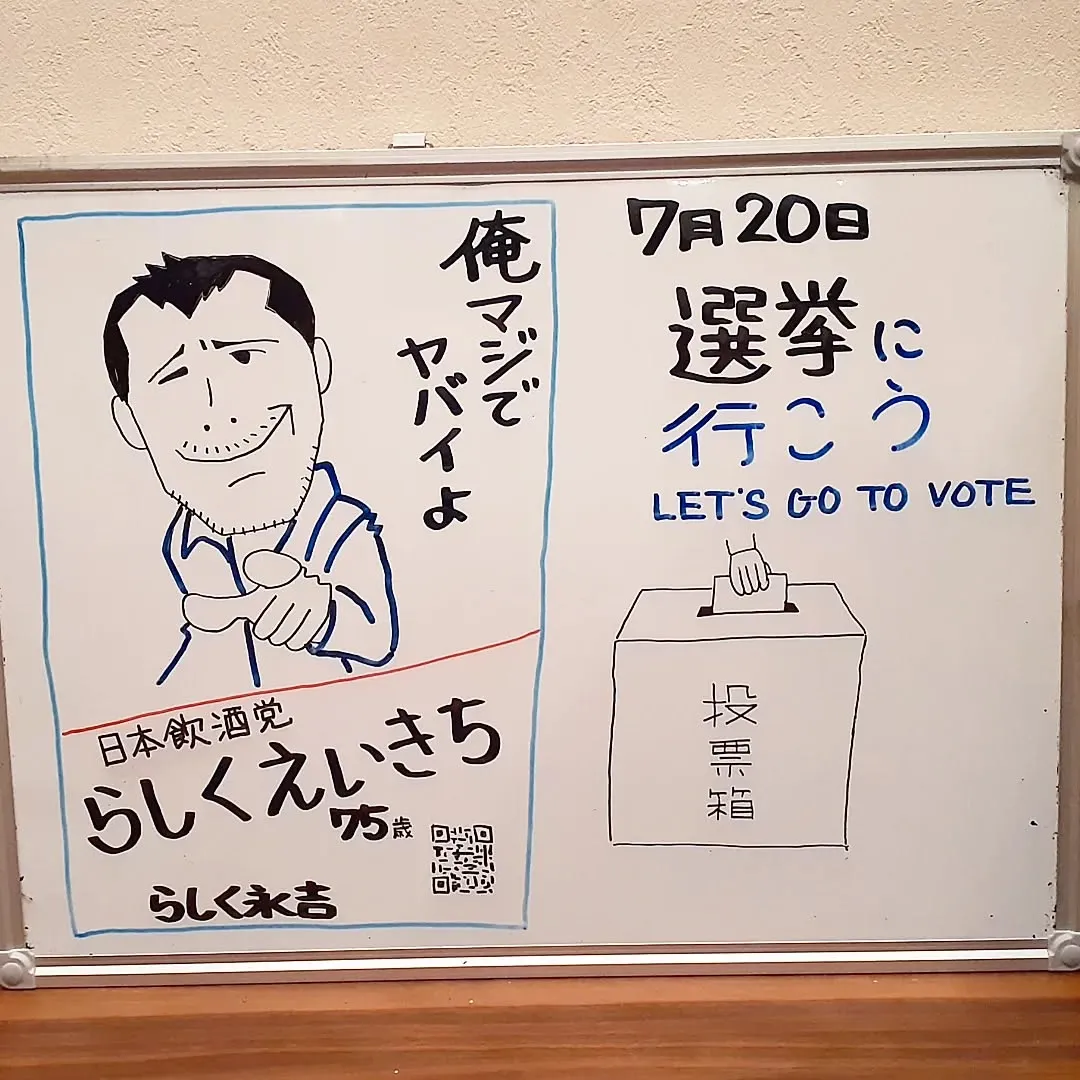 俺マジで
ヤバイよ
日本飲酒党
らしくえいきち
75歳
らしく永吉
7月20日
選挙に
行こう
LET'S GO TO VOTE
投票箱